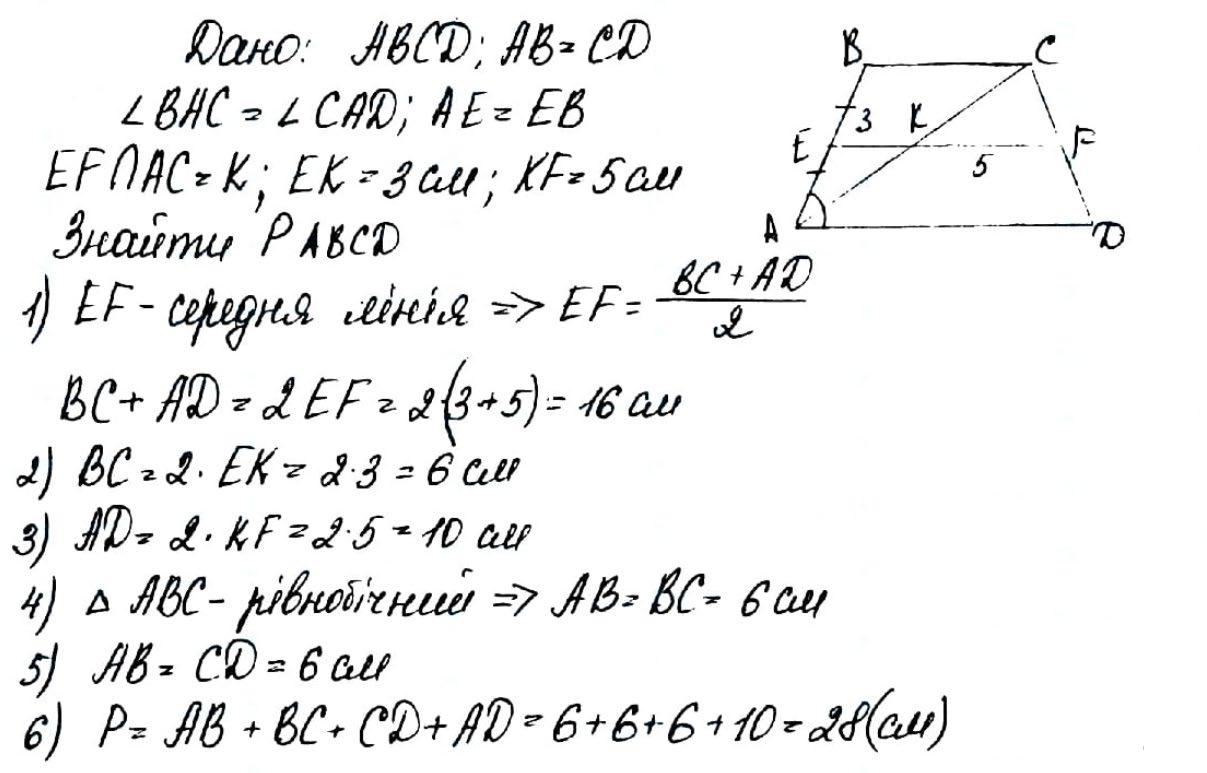 Дано: ABCD; AB = CD
∠BAC = ∠CAD; AE = EB
EF∩AC = K; EK = 3 см; KF = 5 см
Знайти P ABCD
1) EF - середня лінія => EF = (BC + AD)/2
BC + AD = 2EF = 2(3+5) = 16 см
2) BC = 2· EK = 2·3 = 6 см
3) AD = 2· KF = 2·5 = 10 см
4) Δ ABC - рівнобічний => AB = BC = 6 см
5) AB = CD = 6 см
6) P = AB + BC + CD + AD = 6+6+6+10 = 28(см)
B C
3 K
E F
5
A D